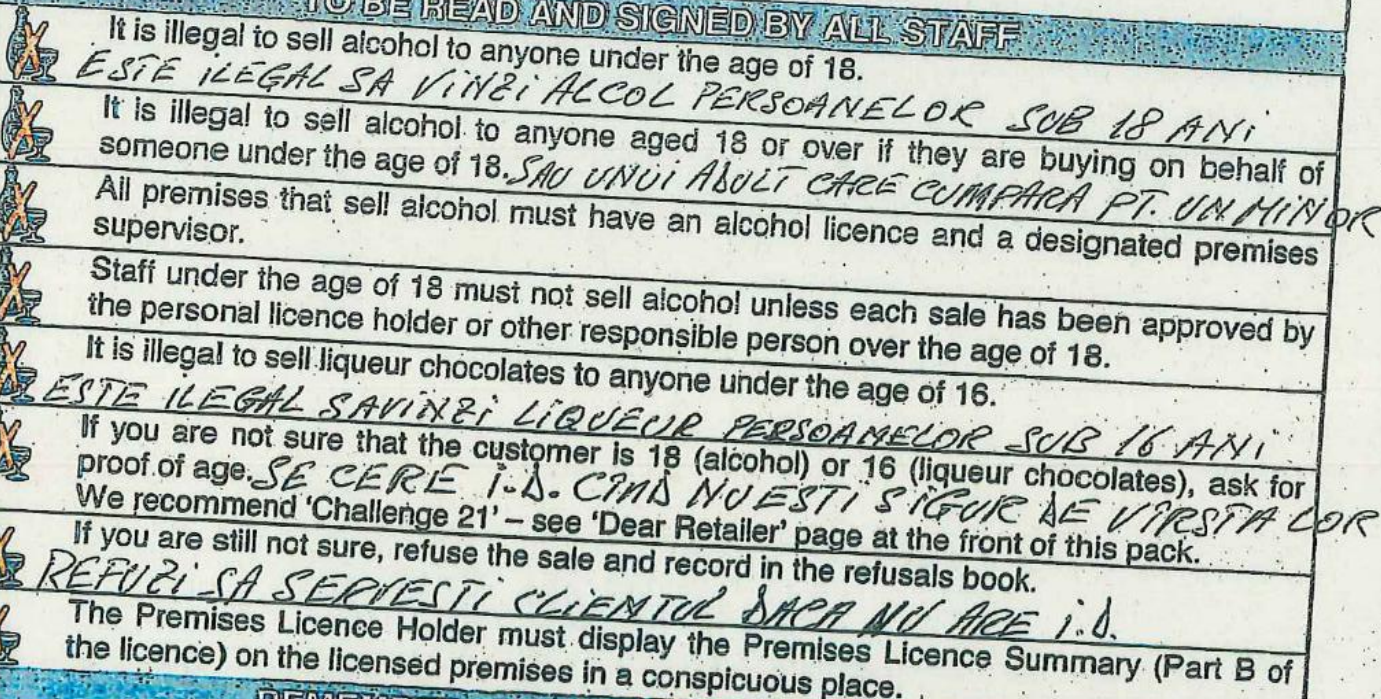 TO BE READ AND SIGNED BY ALL STAFF
It is illegal to sell alcohol to anyone under the age of 18.
ESTE ILEGAL SA VINZI ALCOL PERSOANELOR SUB 18 ANI
It is illegal to sell alcohol to anyone aged 18 or over if they are buying on behalf of
someone under the age of 18. SAU UNUI ADULT CARE CUMPARA PT. UN MINOR
All premises that sell alcohol must have an alcohol licence and a designated premises
supervisor.
Staff under the age of 18 must not sell alcohol unless each sale has been approved by
the personal licence holder or other responsible person over the age of 18.
It is illegal to sell liqueur chocolates to anyone under the age of 16.
ESTE ILEGAL SA VINZI LIQUEUR PERSOANELOR SUB 16 ANI
If you are not sure that the customer is 18 (alcohol) or 16 (liqueur chocolates), ask for
proof of age. SE CERE i.D. CIND NU ESTI SIGUR DE VIRSTA LOR
We recommend 'Challenge 21' – see 'Dear Retailer' page at the front of this pack.
If you are still not sure, refuse the sale and record in the refusals book.
REFUZI SA SERVESTI CLIENTUL DACA NU ARE i.D.
The Premises Licence Holder must display the Premises Licence Summary (Part B of
the licence) on the licensed premises in a conspicuous place.